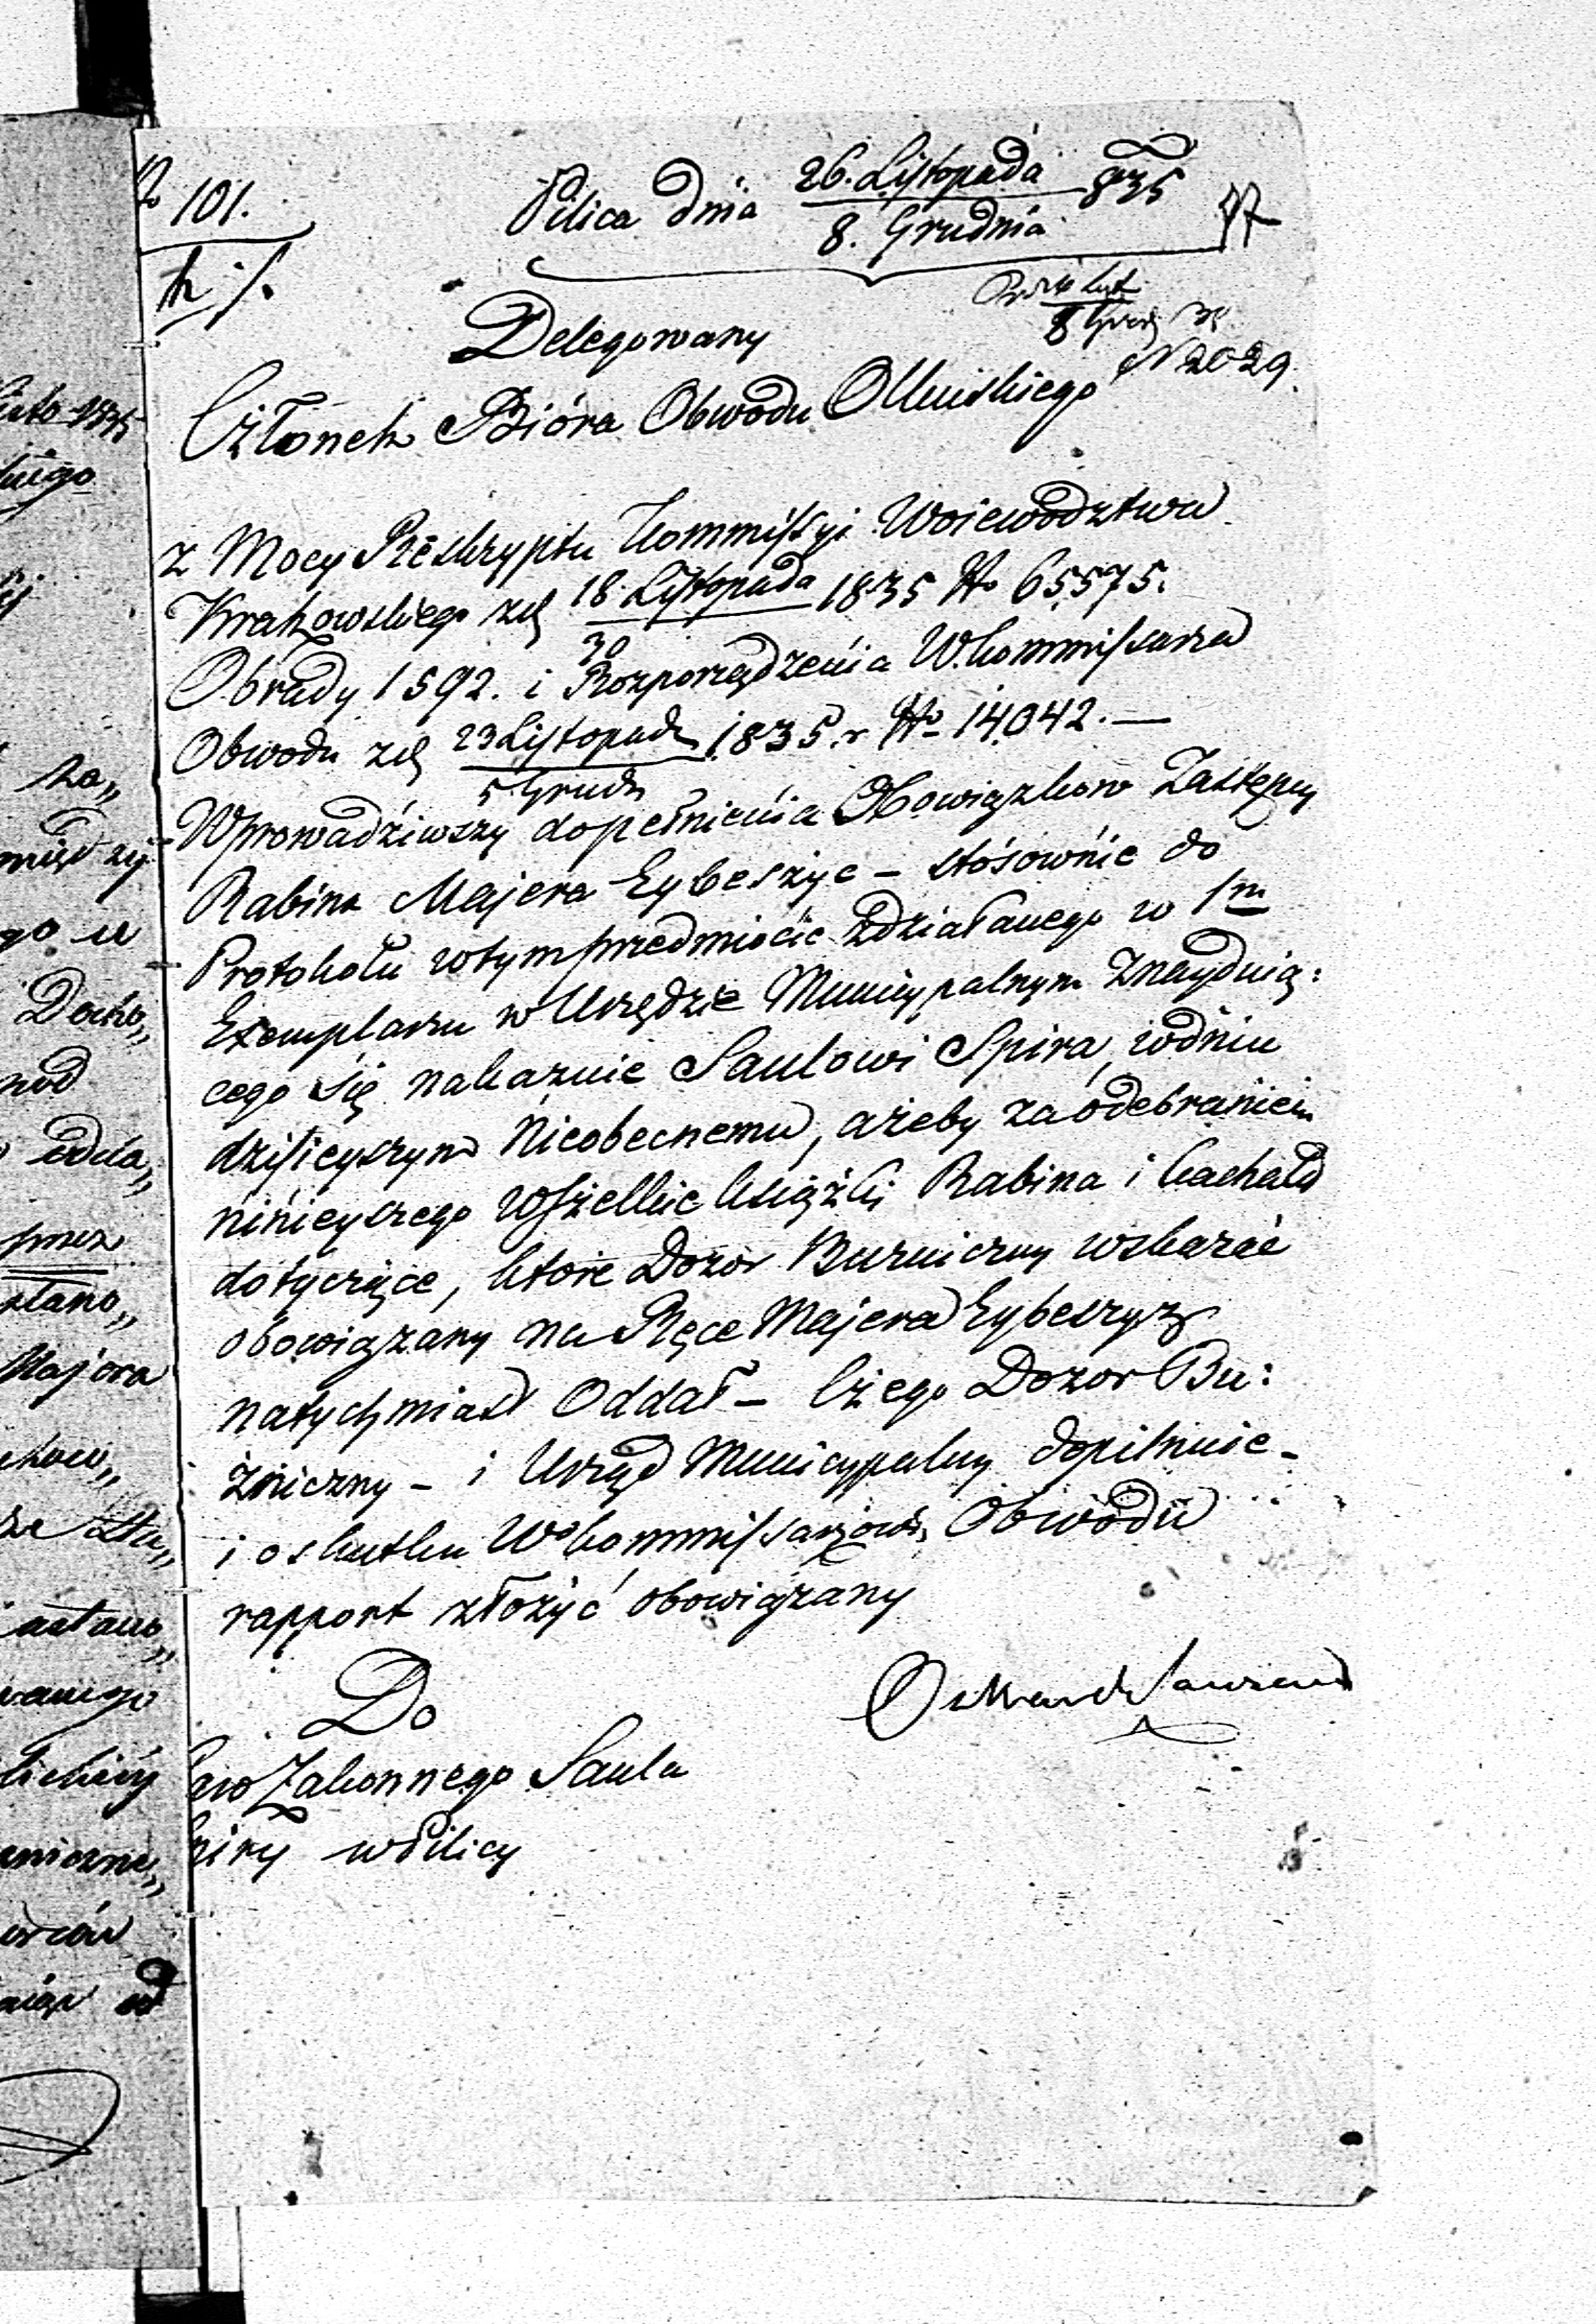 101.
Pilica dnia 26. Listopada 835
8. Grudnia
8 Grud 35
N 2029.
Delegowany
Członek Bióra Obwodu Olkuskiego
Z Mocy Reskryptu Kommissyi Woiewództwa
Krakowskiego z d. 18. Listopada 1835 No 65,575.
30
Obrady 1592. i Rozporządzenia W. Kommissarza
Obwodu z d. 23 Listopada 1835. r No 14,042. —
5 Grud
Wprowadziwszy dopełnienia Obowiązkow Zastępcy
Rabina Majera Eybeszyc – stósownie do
Protokołu w tym przedmiocie zdziałanego w 1m
Exemplarzu w Urzędzie Municypalnym Znayduią:
cego się nakazuie Saulowi Spira, w dniu
dzisieyszym Nieobecnemu, ażeby za odebraniem
ninieyszego wszelkie książki Rabina i Kachału
dotyczące, ktore Dozor Buzniczny wskazać
obowiązany na Ręce Majera Eybeszyz
natychmiast Oddał – Czego Dozor Bu:
zniczny – i Urząd Municypalny dopilnuie –
i o skutku W Kommissarzowi Obwodu
rapport złożyć obowiązany
Do
Zakonnego Saula
w Pilicy
ka„
go w
Docho„
nod
przez
stano„
Majera